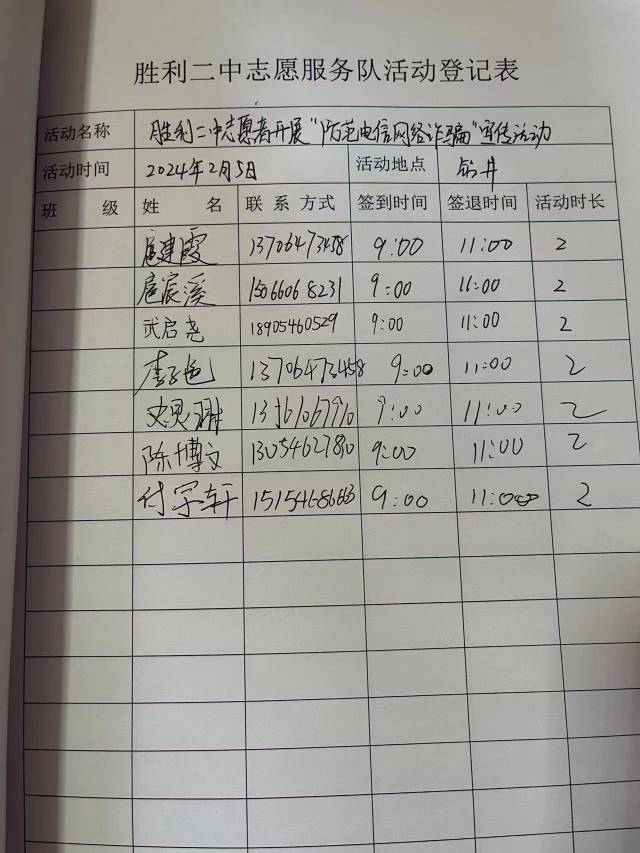 胜利二中志愿服务队活动登记表
活动名称 胜利二中志愿者开展“防范电信网络诈骗”宣传活动
活动时间 2024年2月5日 活动地点 钻井
班 级 姓 名 联 系 方式 签到时间 签退时间 活动时长
扈建霞 13706473458 9:00 11:00 2
扈宸溪 15066068231 9:00 11:00 2
武启尧 18905460529 9:00 11:00 2
李 13706473458 9:00 11:00 2
9:00 11:00 2
陈博文 9:00 11:00 2
付字轩 9:00 11:00 2